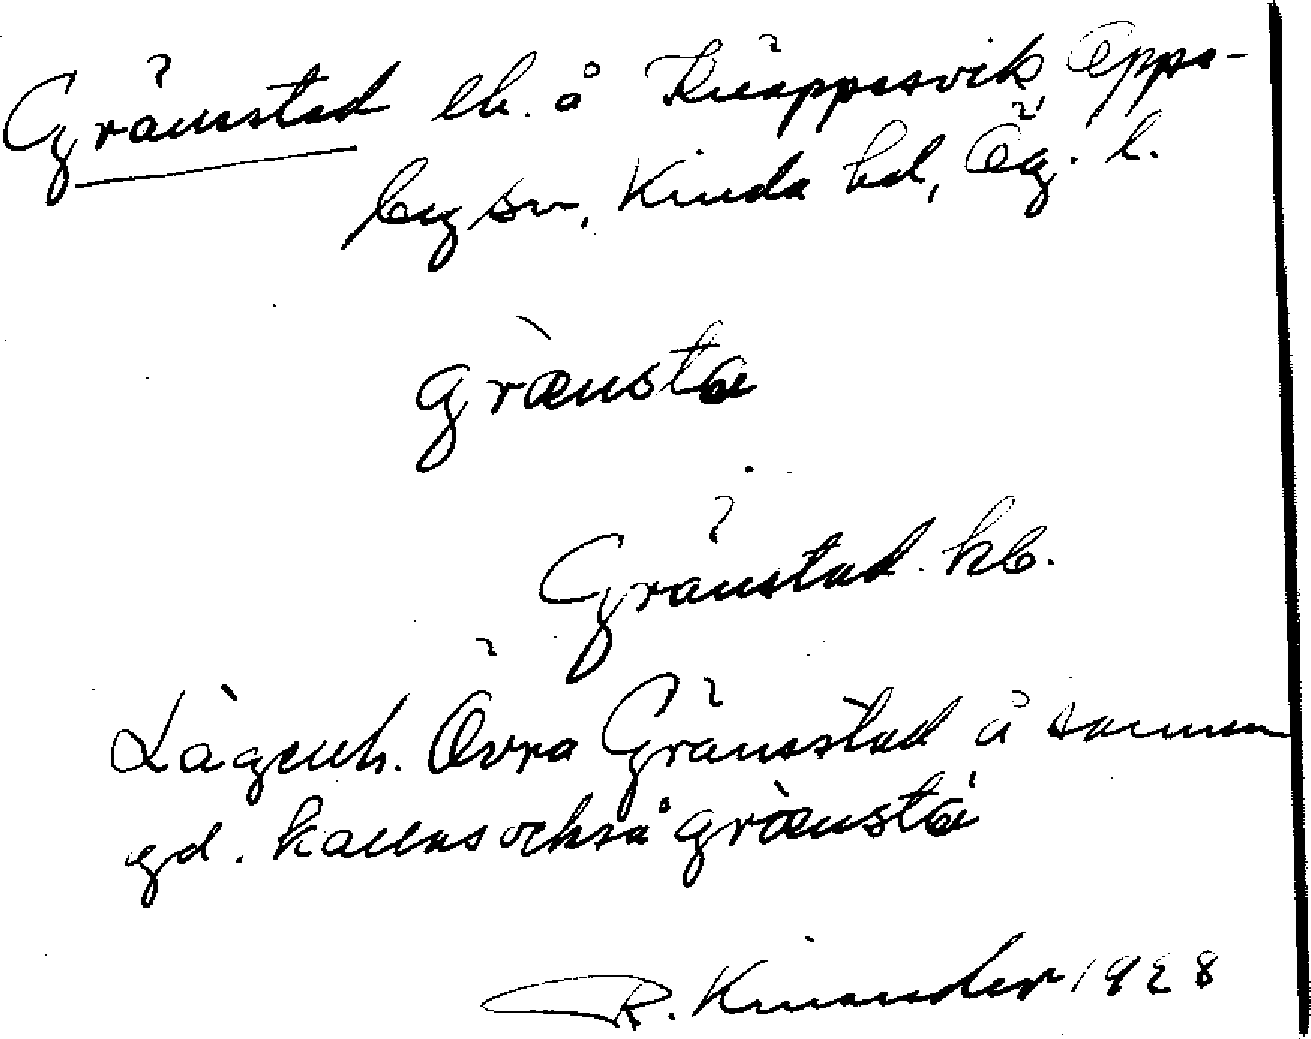 Gränstad lh. å Knäppesvik, Oppe-
by sn, Kinda hd, Ög. l.
grænsta
Gränstad kb.
Lägenh. Övra Gränstad å samma
gd. kallas också grænsta
R. Kinander 1928